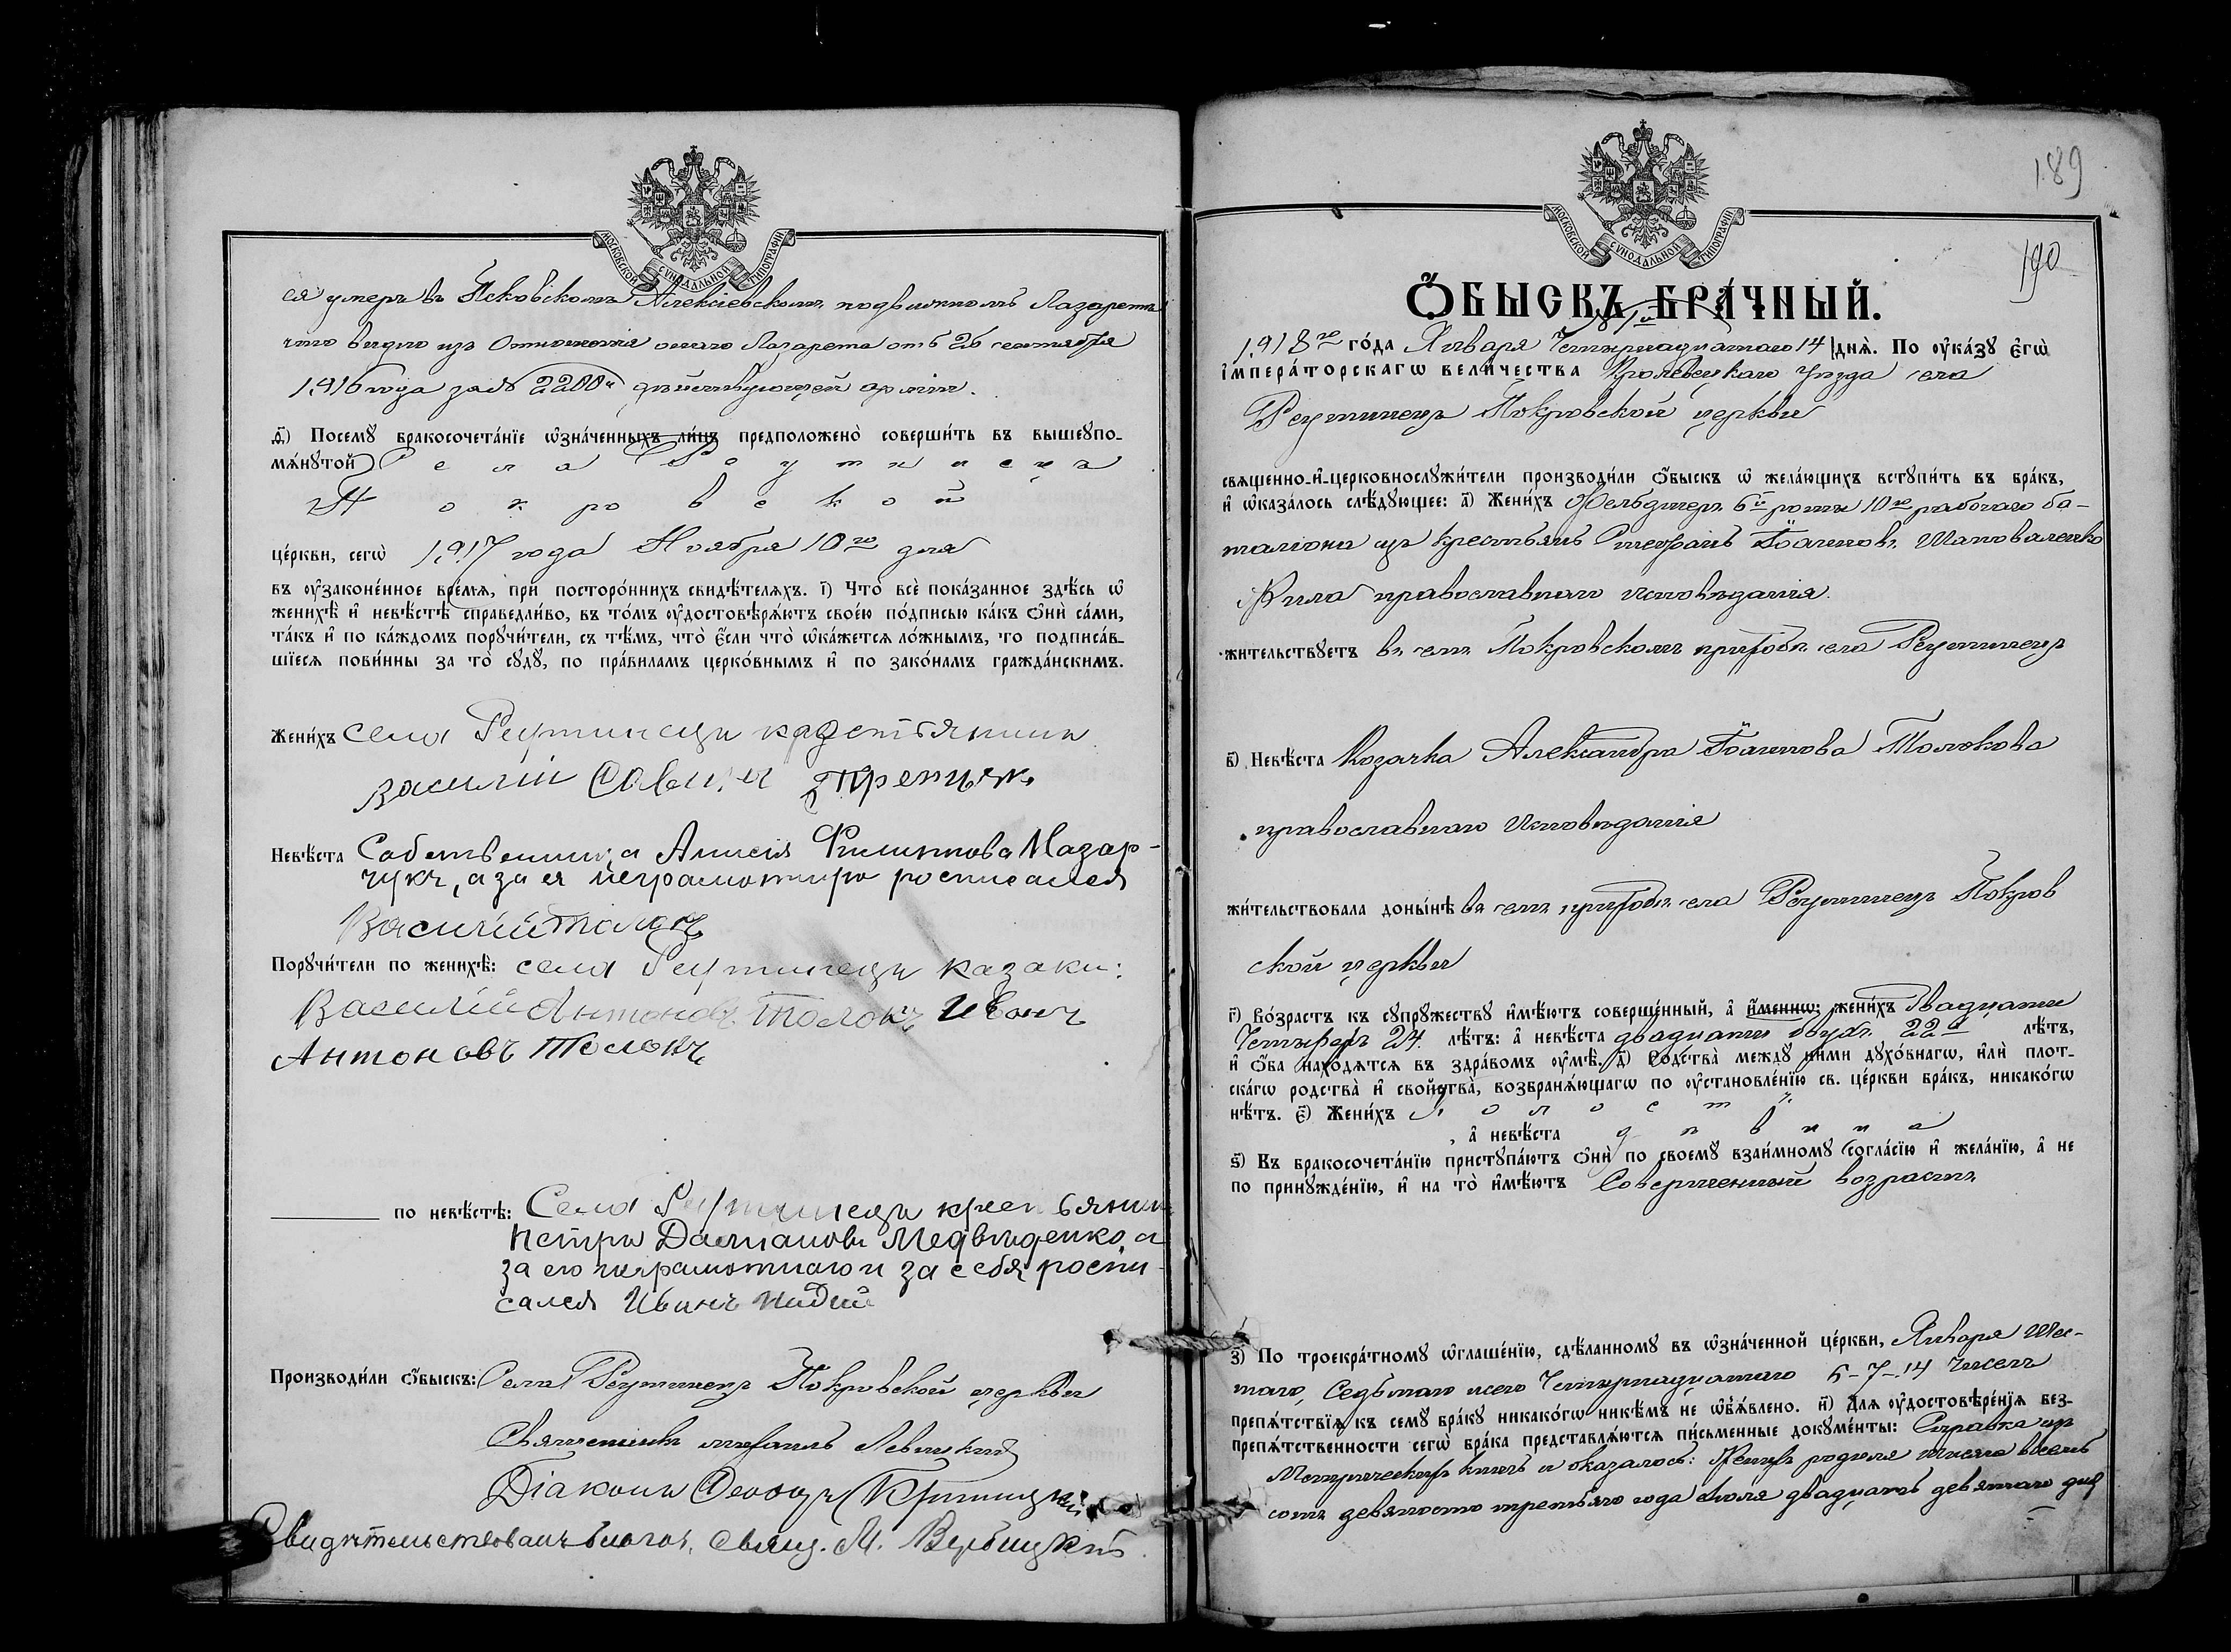 МОСКОВСКОЙ СѴНОДАЛЬНОЙ ТИПОГРАФІИ
ея умеръ въ Псковскомъ Алексіевскомъ подвижномъ Лазаретѣ
что видно изъ Отношенія онаго Лазарета отъ 26 сентября
1916 года за № 2200 дѣйствующей арміи.
д҃і) Посемꙋ бракосочета́нїе ѡзна́ченныхъ ли́цъ предположено̀ соверши́ть въ вышеꙋпо-
мѧ́нꙋтой Села Реутинецъ
Покровской
це́ркви, сегѡ̀ 1917 года Ноября 10го дня
въ ᲂу҆законе́нное вре́мѧ, при посторо́ннихъ свидѣ́телѧхъ. і҃) Что̀ всѐ пока́занное здѣ́сь ѡ҆
женихѣ̀ и҆ невѣ́стѣ справедли́во, въ то́мъ ᲂу҆достовѣрѧ́ютъ свое́ю по́дписью ка́къ ѻ҆нѝ са́ми,
та́къ и҆ по ка́ждомъ порꙋчи́тели, съ тѣ́мъ, что̀ є҆́сли что̀ ѡ҆ка́жется ло́жнымъ, то подписа́в-
шїеся пови́нны за то̀ сꙋдꙋ̀, по пра́виламъ церко́внымъ и҆ по зако́намъ гражда́нскимъ.
Жени́хъ села Реутинецъ крестьянинъ
василій Савинъ
Невѣ́ста Собственница Анисія Филиппова Назар-
чукъ, а за ея неграмотную росписался
Василій Толокъ
Порꙋчи́тели по женихѣ̀: села Реутинецъ казаки:
Василій Антоновъ Толокъ Иванъ
Антоновъ Толокъ
по невѣ́стѣ: Села Реутинецъ крестьянинъ
Петръ Даміановъ Медвѣденко, а
за его неграмотнаго и за себя роспи-
сался Иванъ
Производи́ли ѻ҆́быскъ: Села Реутинецъ Покровской церкви
Священникъ Левицкій
Діаконъ Криницкій
Свидѣтельствовалъ благоч. свящ. М. Вербицкій
189
190
МОСКОВСКОЙ СѴНОДАЛЬНОЙ ТИПОГРАФІИ
Ѻ҆́БЫСКЪ БРА́ЧНЫЙ.
1918го го́да Января Четырнадцатаго 14 днѧ̀. По ᲂу҆ка́зꙋ є҆гѡ̀
і҆мпера́торскагѡ вели́чества Кролевецкаго уѣзда села
Реутинецъ Покровской церкви
свѧщенно-и҆-церковнослꙋжи́тели производи́ли ѻ҆́быскъ ѡ҆ жела́ющихъ встꙋпи́ть въ бра́къ,
и҆ ѡ҆каза́лось слѣ́дꙋющее: а҃) Жени́хъ Фельдшеръ 6й роты 10го рабочаго ба-
таліона изъ крестьянъ Стефанъ Іоанновъ Шаповаленко
православнаго исповѣданія.
жи́тельствꙋетъ въ семъ Покровскомъ приходѣ села Реутинецъ
в҃) Невѣ́ста Козачка Александра Іоаннова Толокова
православнаго исповѣданія
жи́тельствовала доны́нѣ въ семъ приходѣ села Реутинецъ Покров
ской церкви
г҃) Во́зрастъ къ сꙋпрꙋ́жествꙋ и҆мѣ́ютъ соверше́нный, а҆ и҆́меннѡ: жени́хъ двадцати
Четырехъ 24. лѣ́тъ: а҆ невѣ́ста двадцати двухъ 22хъ лѣ́тъ,
и҆ ѻ҆́ба нахо́дѧтсѧ въ здра́вомъ ᲂу҆мѣ̀. д҃) Родства̀ междꙋ̀ ни́ми дꙋхо́внагѡ, и҆лѝ плот-
ска́гѡ родства̀ и҆ свойства̀, возбранѧ́ющагѡ по ᲂу҆становле́нїю св. це́ркви бра́къ, никако́гѡ
нѣ́тъ. є҃) Жени́хъ холостъ
, а҆ невѣ́ста дѣвица
ѕ҃) Въ бракосочета́нїю пристꙋпа́ютъ ѻ҆нѝ по своемꙋ̀ взаи́мномꙋ согла́сїю и҆ жела́нїю, а҆ не
по принꙋжде́нїю, и҆ на то̀ и҆мѣ́ютъ Совершенный возрастъ
з҃) По троекра́тномꙋ ѡ҆глаше́нїю, сдѣ́ланномꙋ въ ѡ҆зна́ченной це́ркви, Января Шес-
таго, Седьмаго и сего Четырнадцатаго 6-7-14 чиселъ
препѧ́тствїѧ къ семꙋ̀ бра́кꙋ никако́гѡ никѣ́мъ не ѡ҆б̾ѧ́влено. и҃) Для ᲂу҆достовѣре́нїѧ без-
препѧ́тственности сегѡ̀ бра́ка представлѧ́ются пи́сьменные докꙋме́нты: Справка изъ
Метрическихъ книгъ и оказалось: Женихъ родился тысяча восемь
сотъ девяносто третьяго года Іюля двадцать девятаго дня